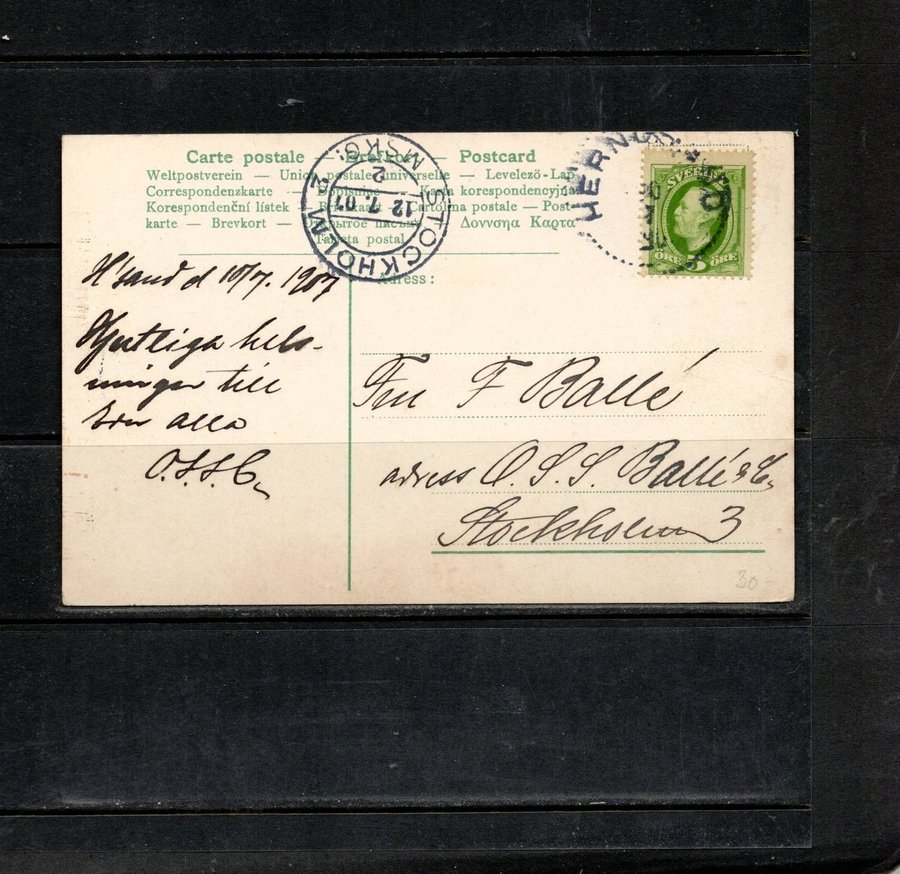 Carte postale — Brefkort — Postcard
Weltpostverein — Union postale universelle — Levelező-Lap
Correspondenzkarte — Dopisnice — Karta korespondencyjna
Korespondenční lístek — cartolina postale — Post-
karte — Brevkort — Открытое письмо — Δοννσηα Καρτα
Tarjeta postal
Adress:
STOCKHOLM 2
MSKG:
2
12 7.07
HERNÖSAND
SVERIGE
ÖRE 5 ÖRE
H'sand d 10/7. 1907
Hjertliga hels-
ningar till
Eder alla
O.S.S.C.
Fru F Ballé
adress O. S. S. Ballé & C.
Stockholm 3
30-